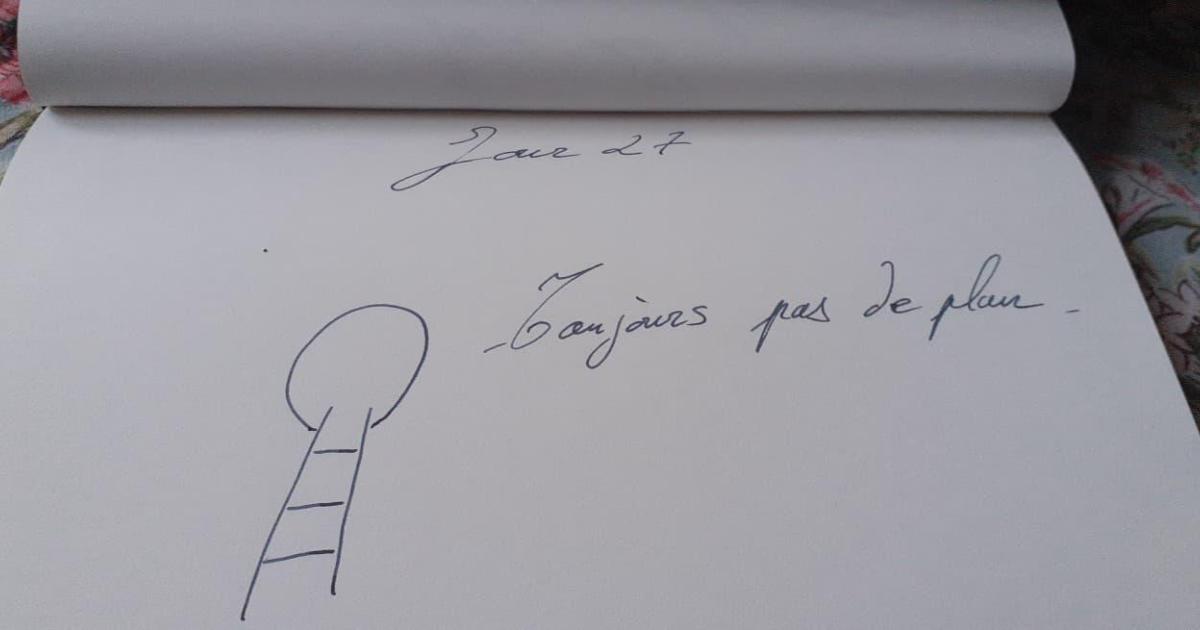 Jour 27
- Toujours pas de plan -